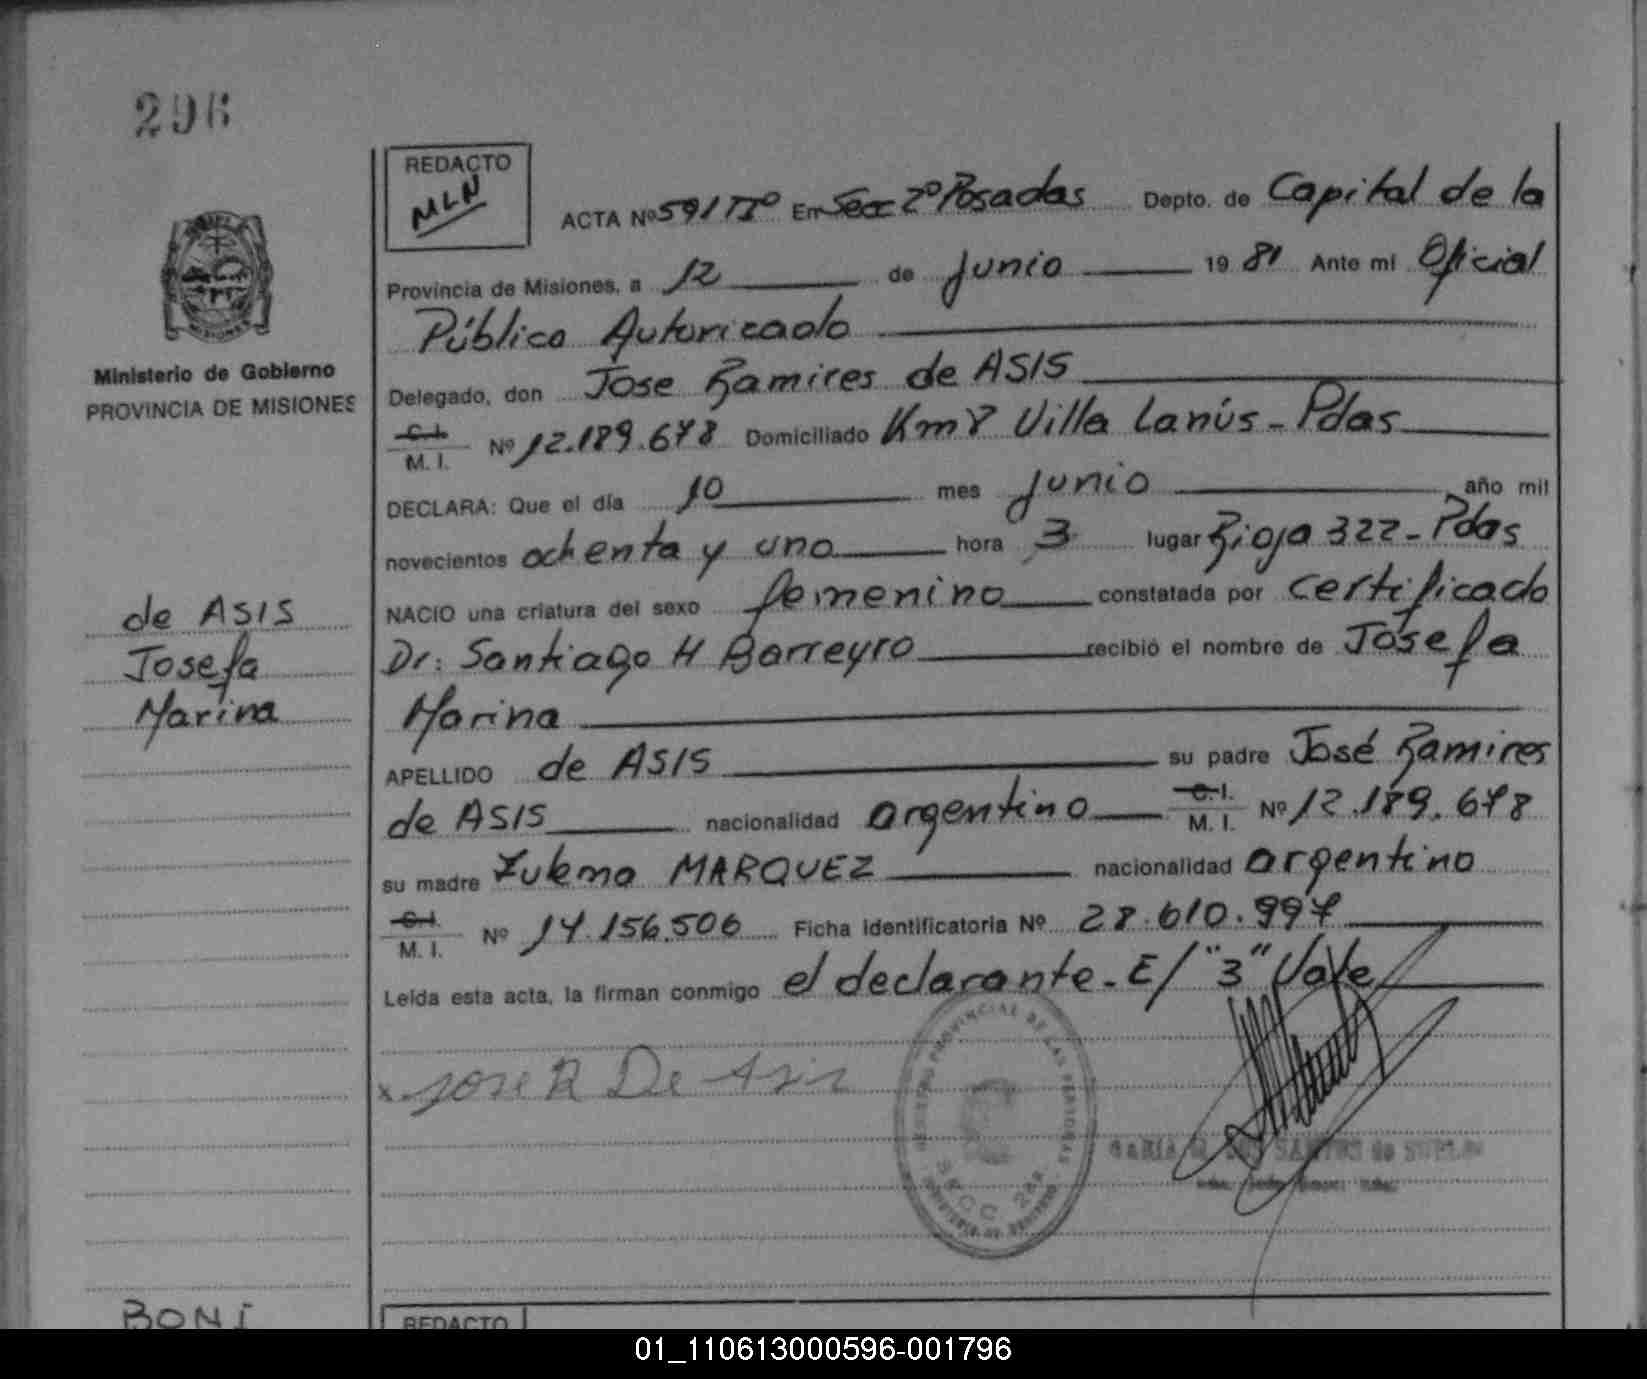 296
REDACTO
MLN
ACTA Nº 591 IIº En Secc 2º Posadas Depto. de Capital de la
Provincia de Misiones, a 12 de Junio 19 81 Ante mi Oficial
Público Autorizado
Delegado, don Jose Ramires de ASIS
C.I. M. I. Nº 12.189.678 Domiciliado Km 8 Villa Lanús - Pdas
DECLARA: Que el día 10 mes Junio año mil
novecientos ochenta y uno hora 3 lugar Rioja 322 - Pdas
NACIO una criatura del sexo femenino constatada por certificado
Dr: Santiago H Barreyro recibió el nombre de Josefa
Marina
APELLIDO de ASIS su padre José Ramires
de ASIS nacionalidad argentino C.I. M. I. Nº 12.189.678
su madre Zulema MARQUEZ nacionalidad argentino
C.I. M. I. Nº 14.156.506 Ficha identificatoria Nº 28.610.997
Leída esta acta, la firman conmigo el declarante - E/ "3" Vale
x José R De Asis
REGISTRO PROVINCIAL DE LAS PERSONAS
SECC. 2da
MINISTERIO DE GOBIERNO
MISIONES
Ministerio de Gobierno
PROVINCIA DE MISIONES
de ASIS
Josefa
Marina
BONI
REDACTO
01_110613000596-001796